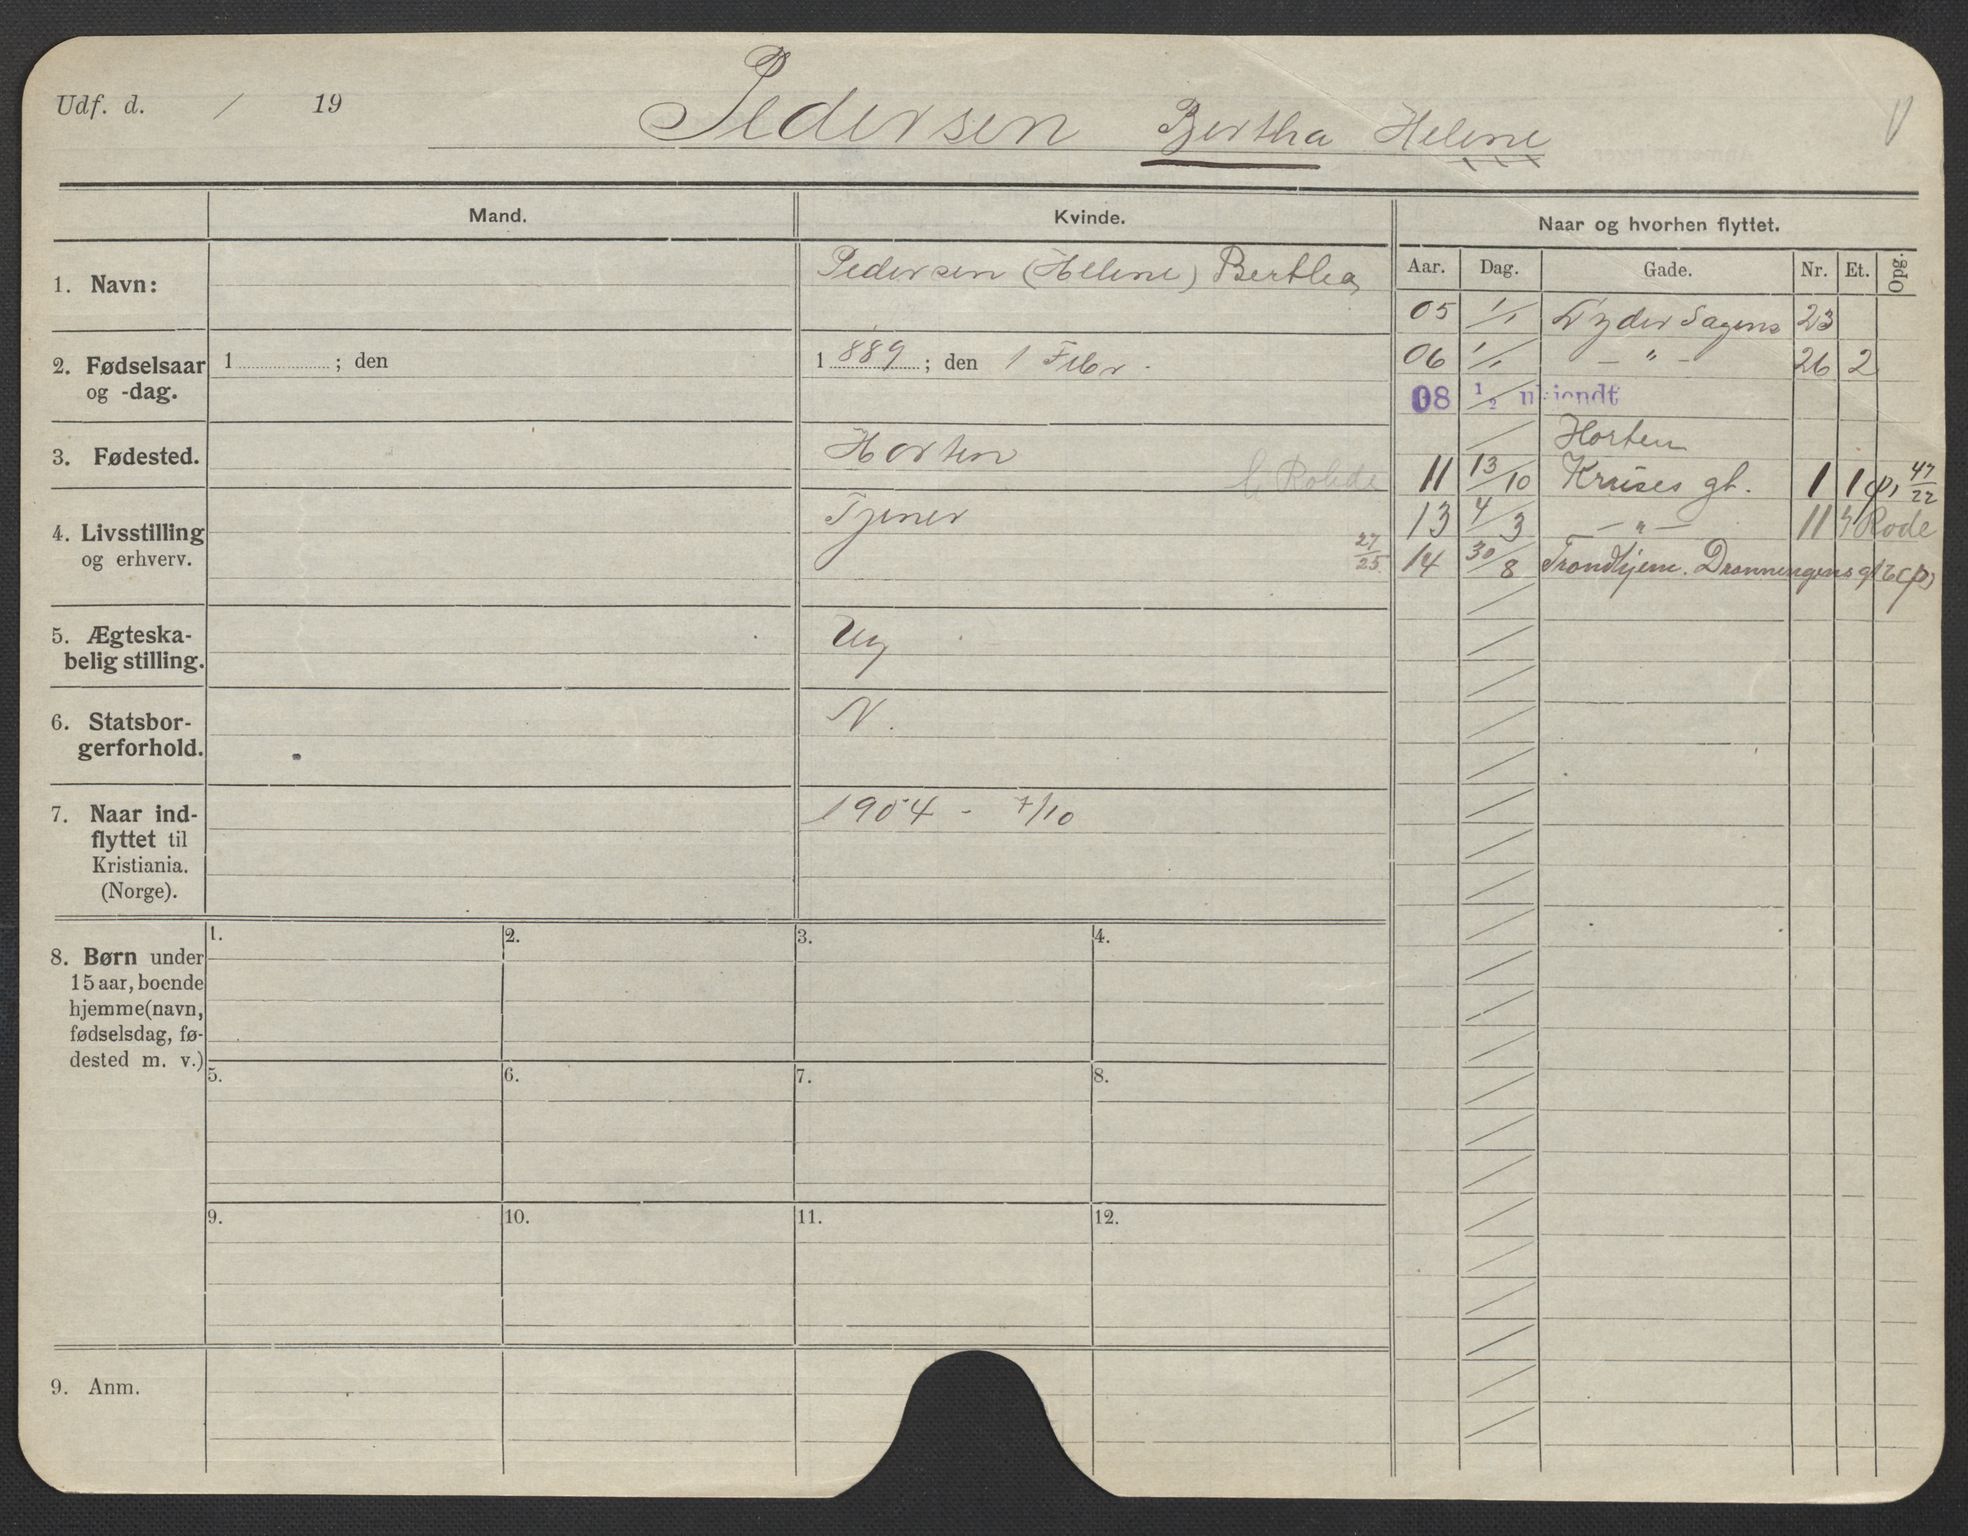 Udf. d. / 19
Pedersen Bertha Helene
Mand. Kvinde. Naar og hvorhen flyttet.
Aar. Dag. Gade. Nr. Et. Opg.
1. Navn: Pedersen (Helene) Bertha
05 1/1 Lyder Sagens 23
2. Fødselsaar og -dag. 1 ; den 1 889 ; den 1 Febr.
06 1/1 — " — 26 2
08 1/2 ukjendt
Horten
3. Fødested. Horten
11 13/10 Kruses gt. 1 1 47/22
4. Livsstilling og erhverv. Tjener
13 4/3 — " — 11 Rode
27/25 14 30/8 Trondhjem. Dronningens gt
5. Ægteska-
belig stilling. Ug
6. Statsbor-
gerforhold. N.
7. Naar ind-
flyttet til
Kristiania.
(Norge). 1904 - 7/10
8. Børn under
15 aar, boende
hjemme (navn,
fødselsdag, fø-
dested m. v.)
1. 2. 3. 4.
5. 6. 7. 8.
9. 10. 11. 12.
9. Anm.